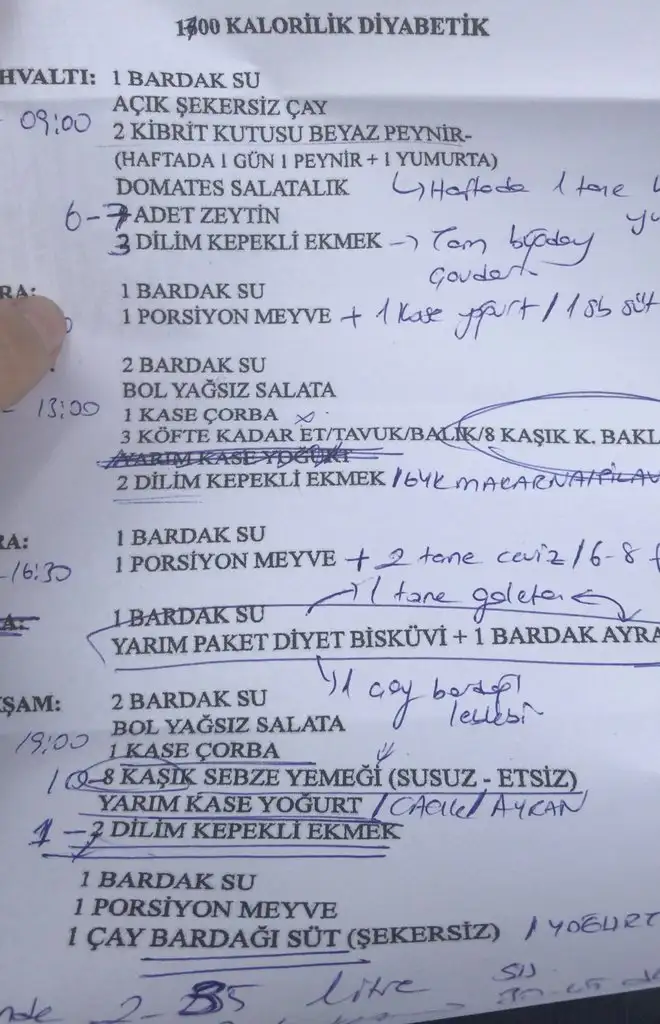 1700 KALORİLİK DİYABETİK
HVALTI: 1 BARDAK SU
AÇIK ŞEKERSİZ ÇAY
09:00
2 KİBRİT KUTUSU BEYAZ PEYNİR-
(HAFTADA 1 GÜN 1 PEYNİR + 1 YUMURTA)
DOMATES SALATALIK Haftada 1 tane
6-7 ADET ZEYTİN
3 DİLİM KEPEKLİ EKMEK → Tam buğday
RA: 1 BARDAK SU
1 PORSİYON MEYVE + 1 kase yoğurt / 1 sb süt
2 BARDAK SU
BOL YAĞSIZ SALATA
13:00 1 KASE ÇORBA
3 KÖFTE KADAR ET/TAVUK/BALIK/8 KAŞIK K. BAKL
YARIM KASE YOĞURT
2 DİLİM KEPEKLİ EKMEK / 6YK MAKARNA/PİLAV
RA: 1 BARDAK SU
-16:30 1 PORSİYON MEYVE + 2 tane ceviz / 6-8 f
1 tane galeta
A: 1 BARDAK SU
YARIM PAKET DİYET BİSKÜVİ + 1 BARDAK AYRA
1 çay bardağı
leblebi
ŞAM: 2 BARDAK SU
BOL YAĞSIZ SALATA
19:00 1 KASE ÇORBA
10-8 KAŞIK SEBZE YEMEĞİ (SUSUZ - ETSİZ)
YARIM KASE YOĞURT / CACIK / AYRAN
1-2 DİLİM KEPEKLİ EKMEK
1 BARDAK SU
1 PORSİYON MEYVE
1 ÇAY BARDAĞI SÜT (ŞEKERSİZ) / YOĞURT
nde 2- litre su